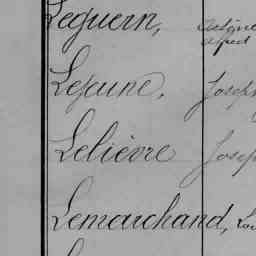 Leguern,
Alfred
Lejeune, Joseph
Lelièvre Josep
Lemarchand, Lou